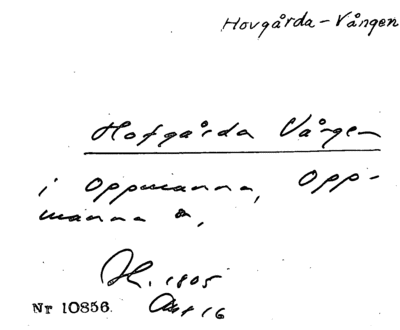 Hovgårda-Vången
Hofgårda Vången
i Oppmanna, Opp-
manna s,
H. 1805
Akt 16
Nr 10856.